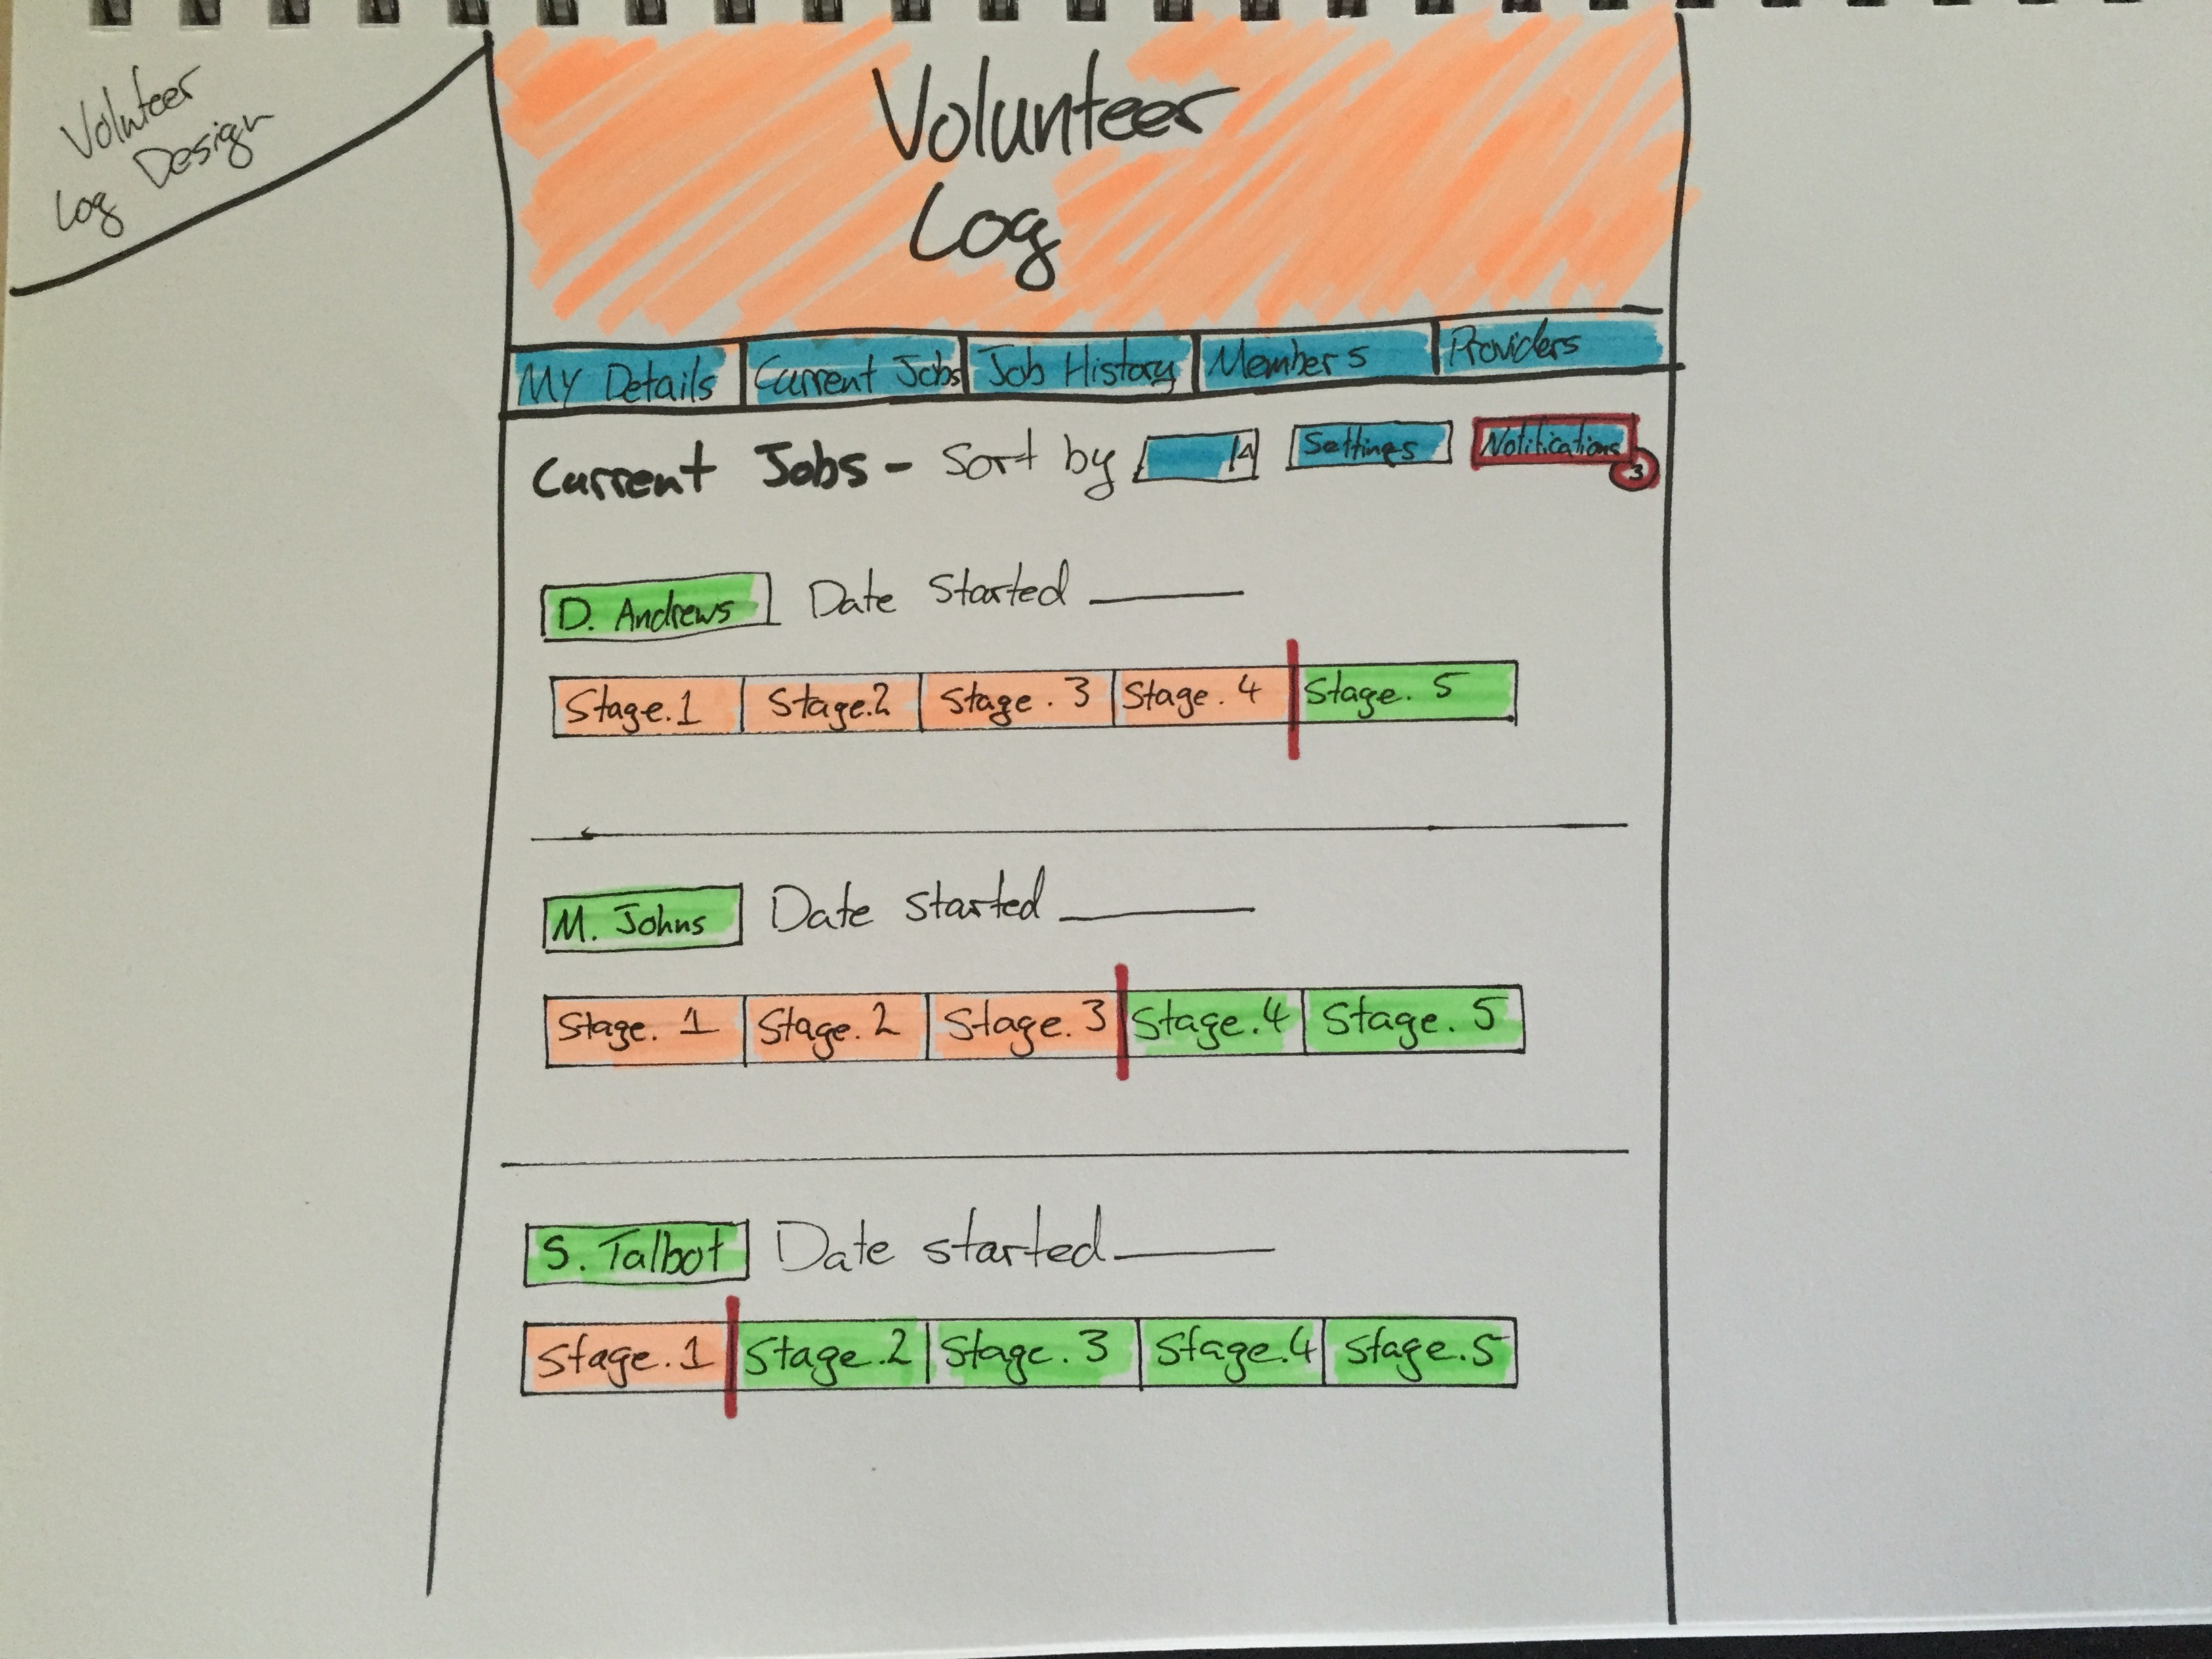 Volnteer
Log Design
Volunteer
Log
My Details Current Jobs Job History Members Providers
Current Jobs - Sort by Settings Notifications
3
D. Andrews Date Started
Stage.1 Stage.2 Stage.3 Stage.4 Stage.5
M. Johns Date Started
Stage.1 Stage.2 Stage.3 Stage.4 Stage.5
S. Talbot Date started
Stage.1 Stage.2 Stage.3 Stage.4 Stage.5